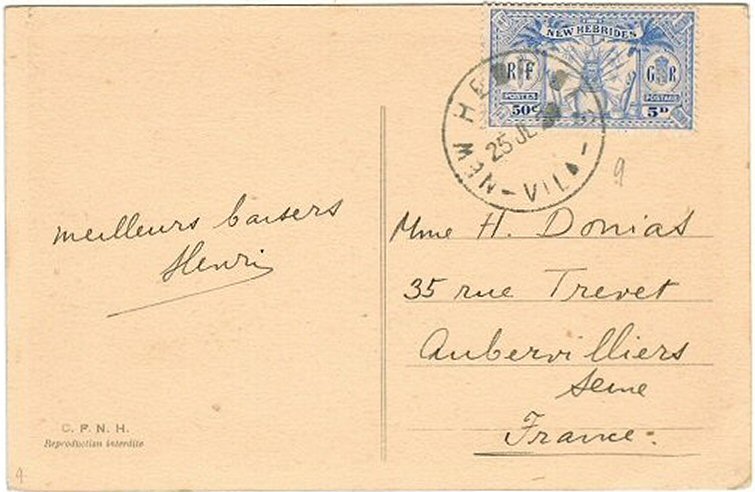 NEW HEBRIDES
RF
GR
POSTES
POSTAGE
50c
5D
NEW HEBRIDES
25 JL
-VILA-
9
meilleurs baisers
Henri
Mme H. Donias
35 rue Trevet
Aubervilliers
Seine
France.
C. P. N. H.
Reproduction interdite
9